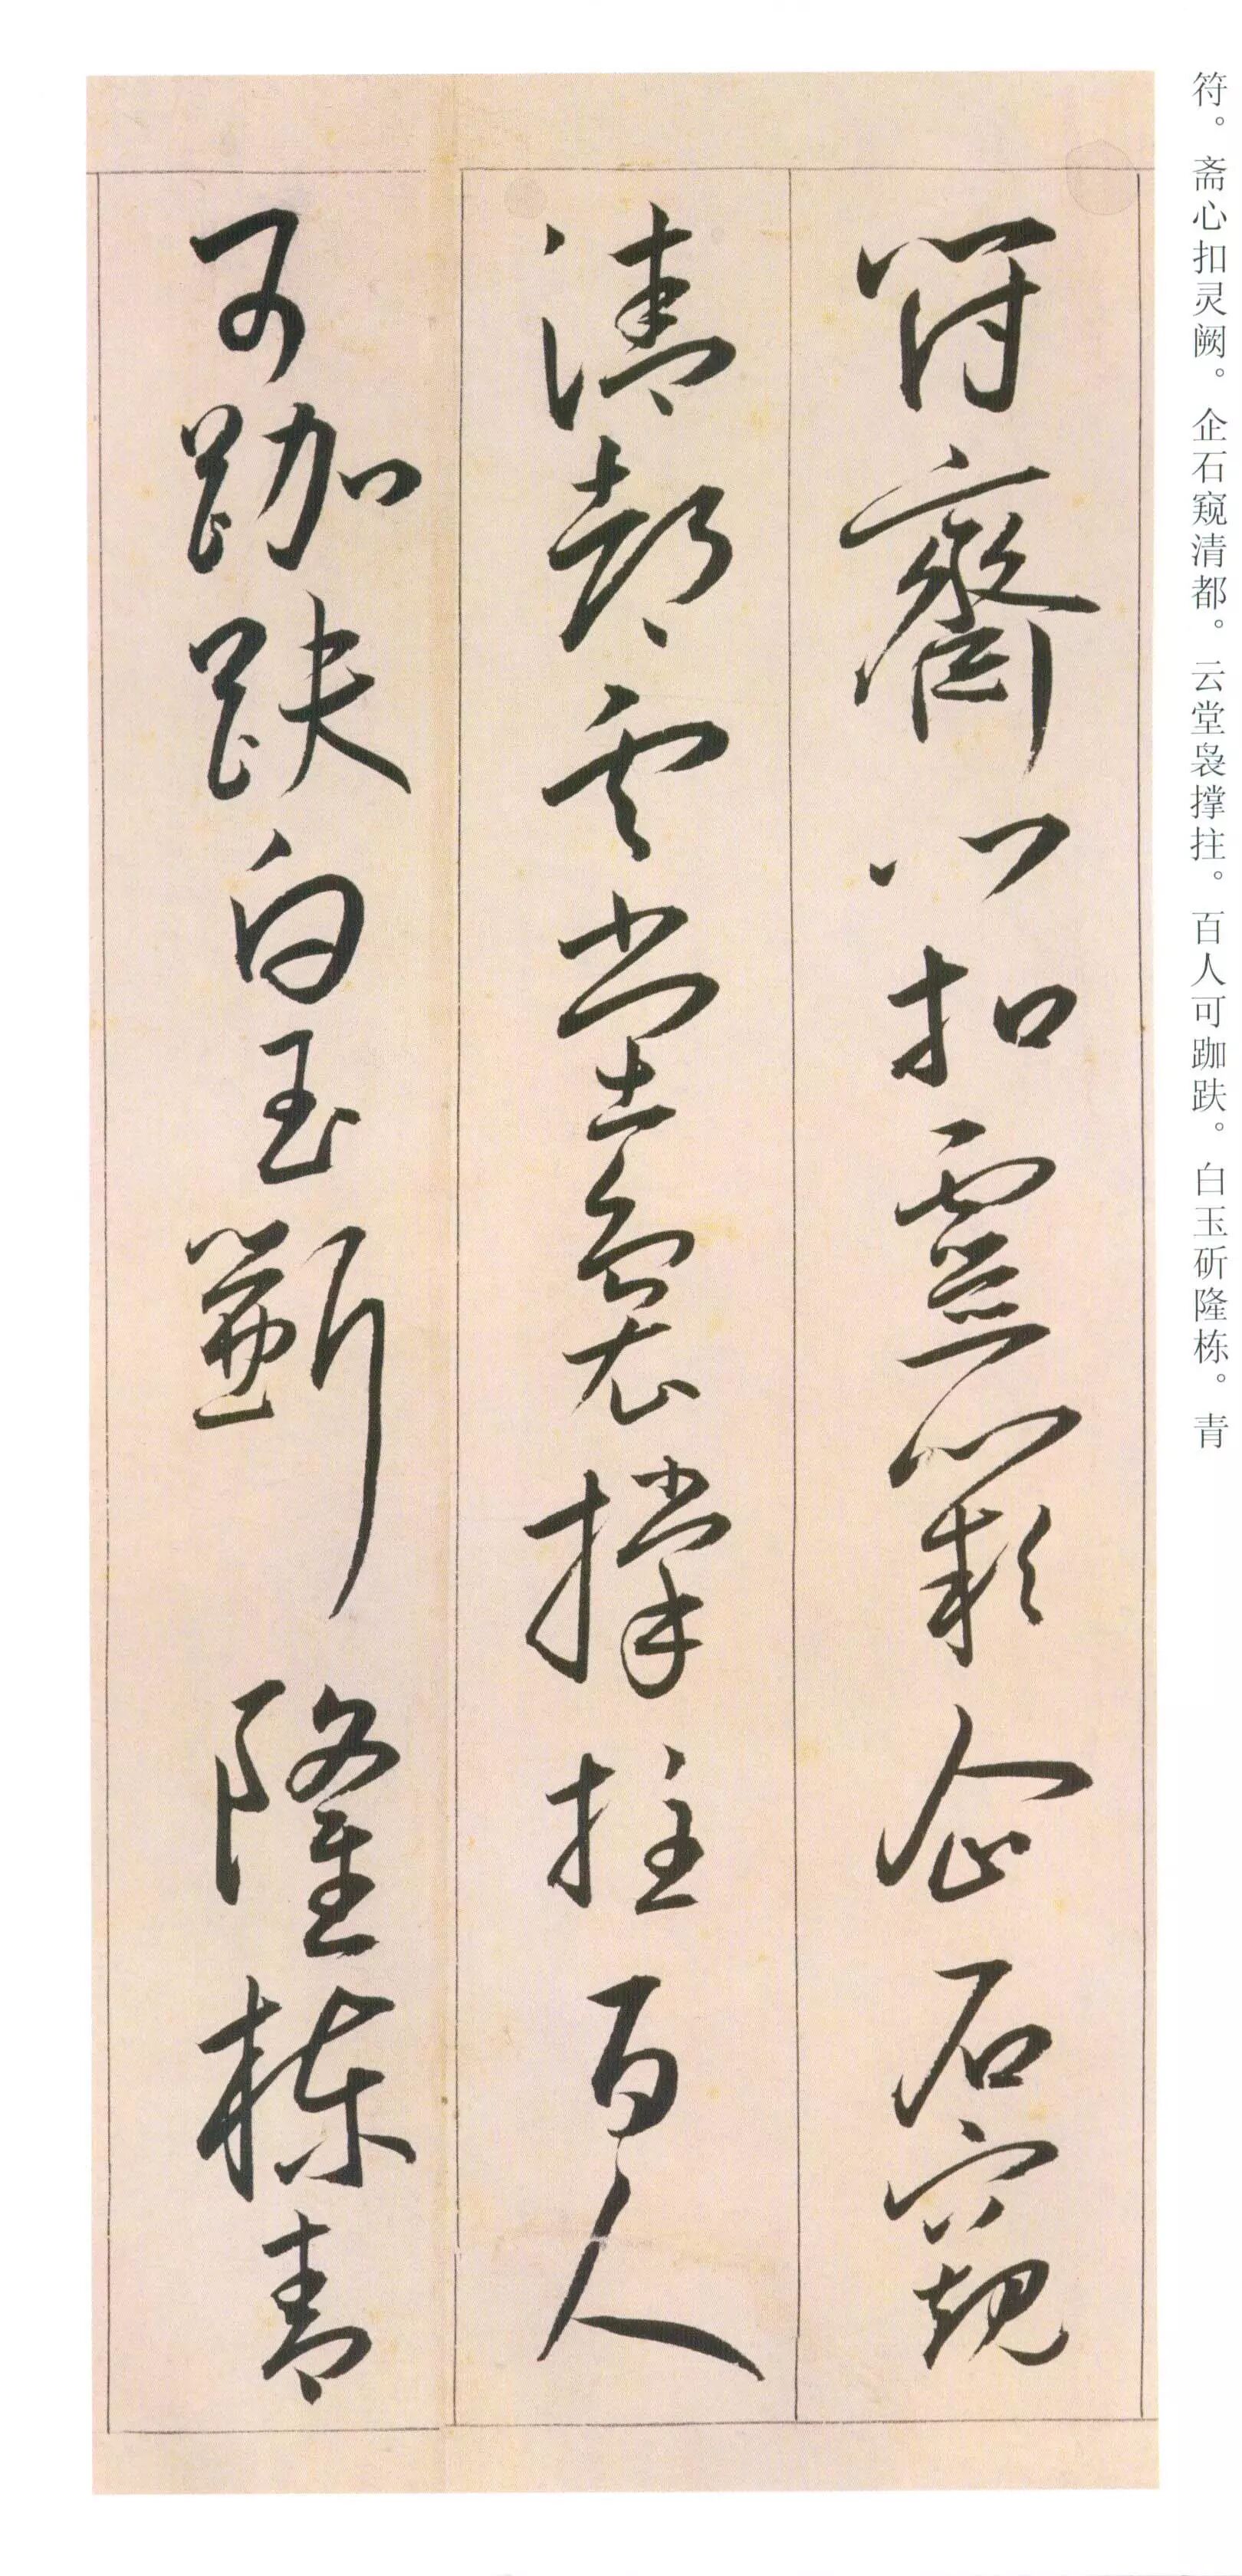 符。斋心扣灵阙。企石窥清都。云堂袅撑拄。百人可跏趺。白玉斫隆栋。青
符齋心扣靈闕企石窺
清都雲堂裊撐拄百人
可跏趺白玉斲隆棟青